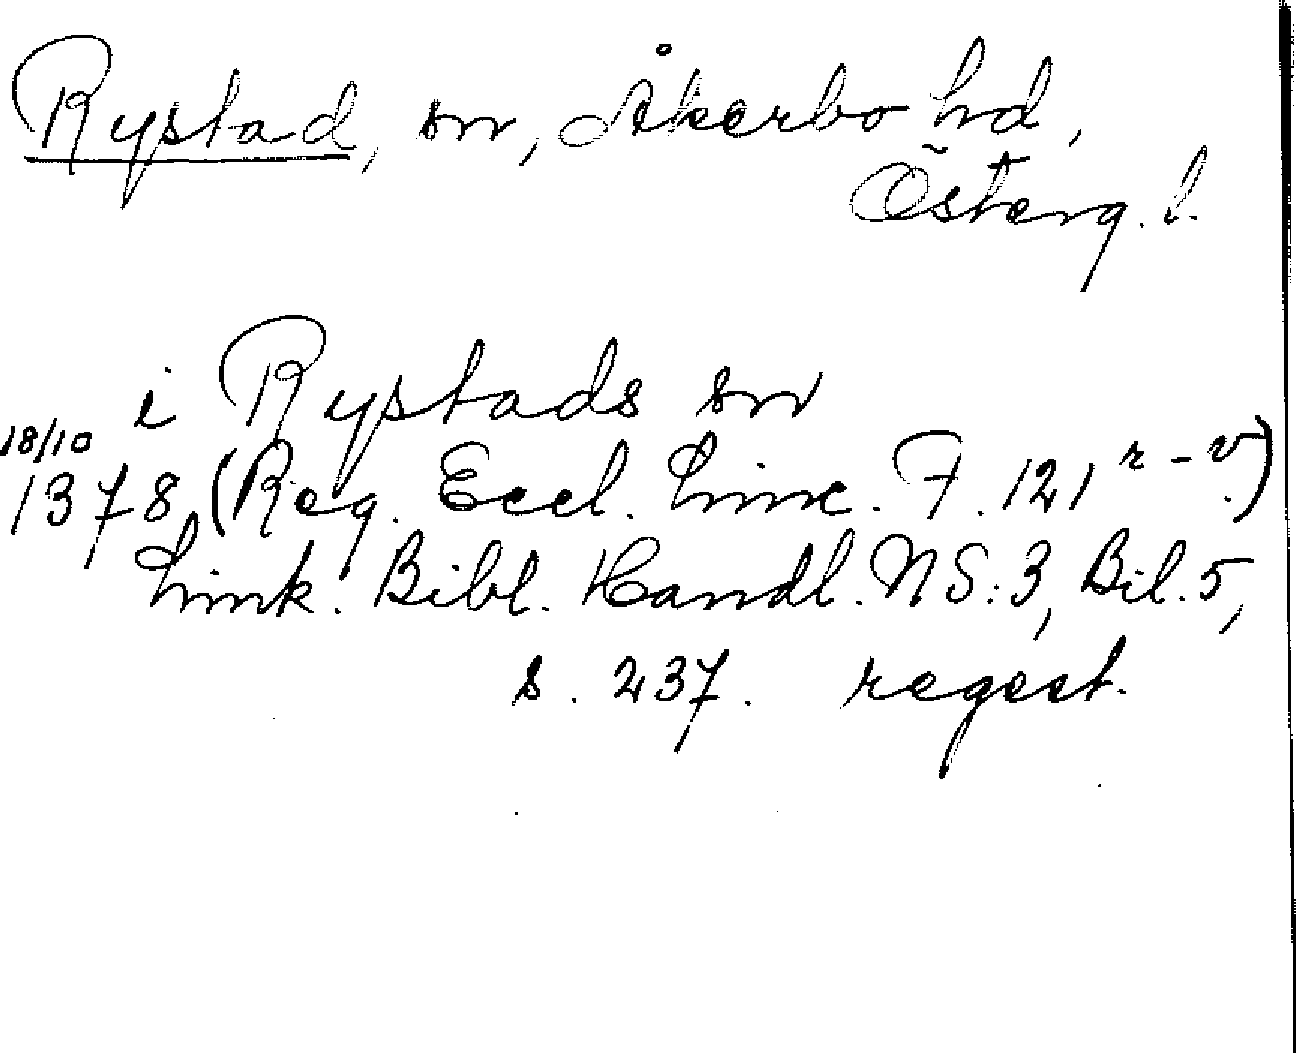 Rystad, sn, Åkerbo hd,
Österg. l.
i Rystads sn
18/10
1378 (Reg. Eccl. Linc. F. 121 r - v.)
Link. Bibl. Handl. NS:3, Bil. 5,
s. 237. regest.